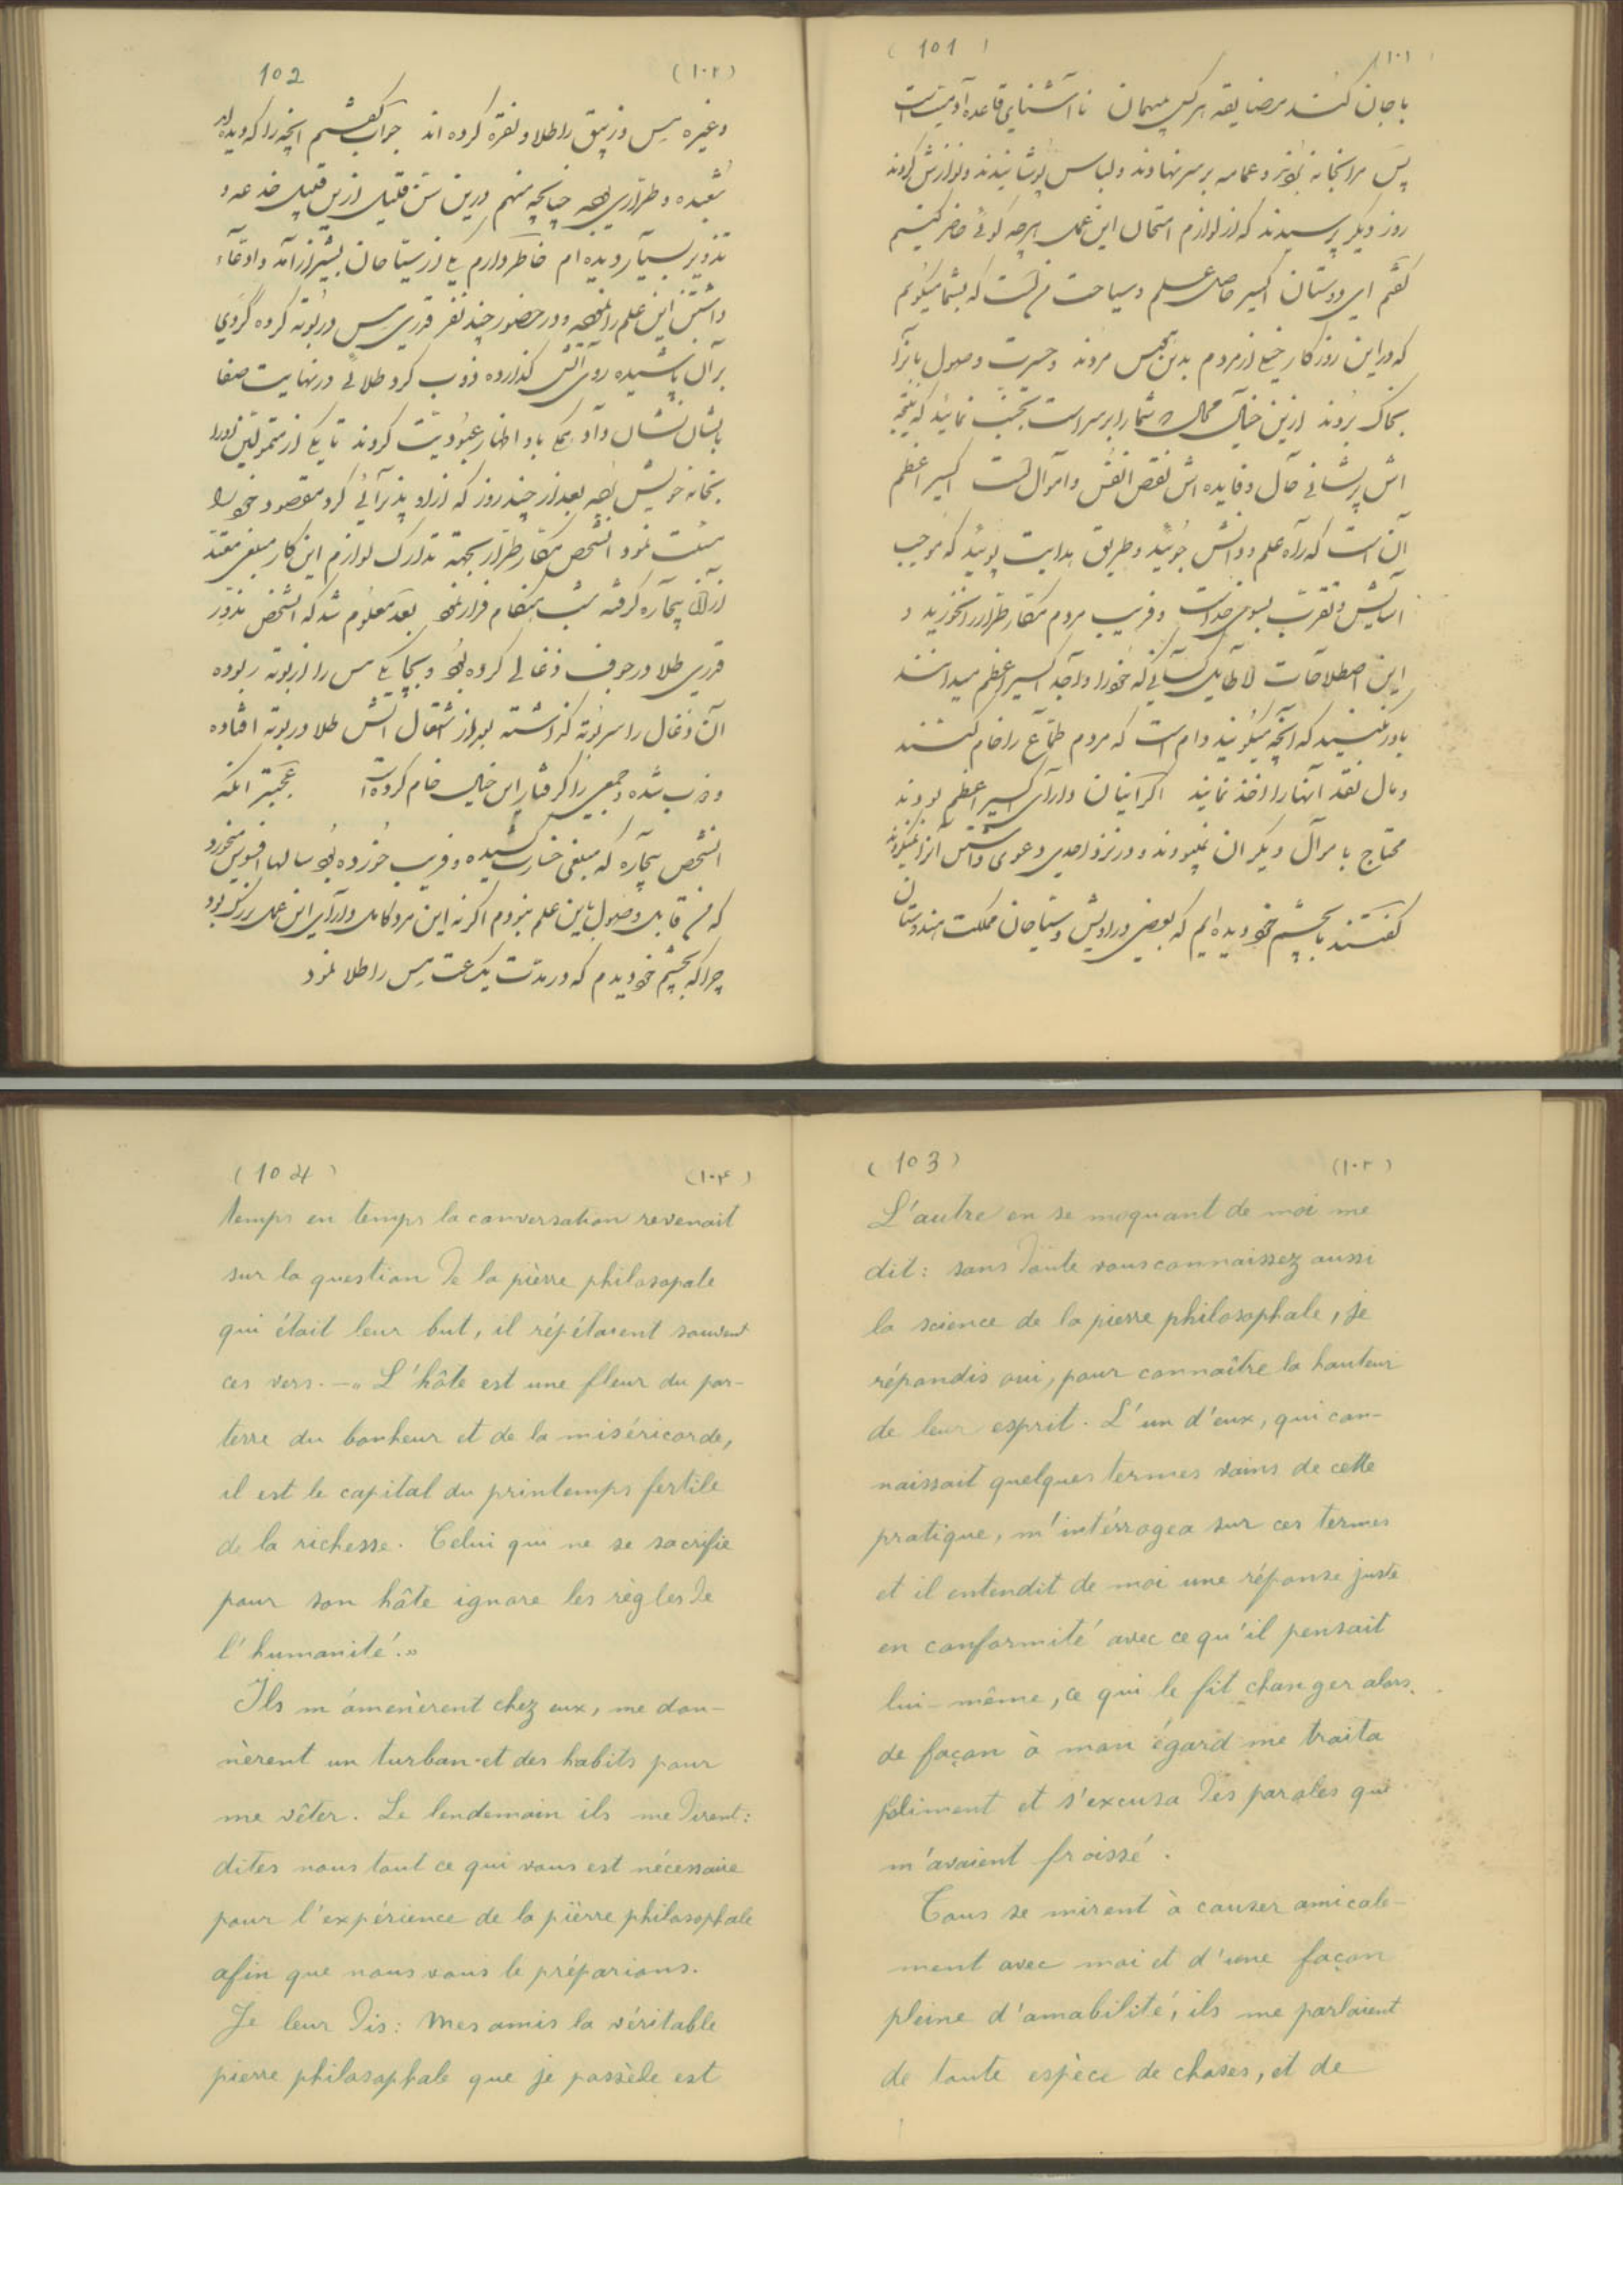 ( 101 )
(۱۰۱)
با جان کند مضایقه هر کس ز میهمان نا آشنای قاعده آدمیت است
پس مرا بخانه بردند و عمامه بر سر نهادند و لباس پوشانیدند و نوازش کردند
روز دیگر پرسیدند که از لوازم امتحان این عمل هر چه گوئی حاضر کنیم
گفتم ای دوستان اکسیر حاصل علم و سیاحت من است که بشما میگویم
که در این روزگار جمعی از مردم بدین هوس مردند و حسرت وصول بآنرا
بخاک بردند ازین خیال محال که شما را بر سر است تجنب نمائید که نتیجه
اش پریشانی حال و فایده اش نقص انفس و اموال است اکسیر اعظم
آن است که راه علم و دانش جوئید و طریق هدایت پوئید که موجب
آسایش و تقرب بسوی خداست و فریب مردم مکار طرار را نخورید و
این اصطلاحات لاطایل کسانیکه خود را واجد اکسیر اعظم میدانند
باور نکنید که آنچه میگویند دام است که مردم طماع را خام کنند
و مال نقد آنها را اخذ نمایند اگر آنان دارای اکسیر اعظم بودند
محتاج بامرآل دیگران نمیبودند و در نزد احدی دعوی داشتن آنرا نمیکردند
گفتند بچشم خود دیده ایم که بعضی دراویش و سیاحان مملکت هندوستان
102
(۱۰۲)
و غیره مس و زیبق را طلا و نقره کرده اند جواب گفتم آنچه را که دیده اند
شعبده و طراری بوده چنانچه منهم درین سن قلیل ازین قبیل خدعه و
تذویر بسیار دیده ام خاطر دارم یکی از سیاحان بشیراز آمد و ادعاء
داشتن این علم را نموده و در حضور چند نفر قدری مس در بوته کرده گردی
بر آن پاشیده روی آتش گذارده ذوب کرد طلائی در نهایت صفا
بایشان نشان داد همگی باو اظهار عبودیت کردند تا یکی از متمولین او را
بخانه خویش برده بعد از چند روز که از او پذیرآئی کرد مقصود خود را
مسئلت نمود آنشخص مکار طرار بجهة تدارک لوازم این کار مبلغی معتد
از آن بیچاره گرفته شب هنگام فرار نمود بعد معلوم شد که آنشخص مذور
قدری طلا در جوف ذغالی کرده بود و بچابکی مس را از بوته ربوده
آن ذغال را سر بوته گذاشته بود از اشتعال آتش طلا در بوته افتاده
و ذوب شده و جمعی را گرفتار این خیال خام کرده است عجبتر آنکه
آنشخص بیچاره که مبلغی خسارت کشیده و فریب خورده بود سالها افسوس میخورد
که من قابل وصول باین علم نبودم اگر نه این مرد کامل و دارای این عمل بزرگ بود
چرا که بچشم خود دیدم که در مدت یکساعت مس را طلا نمود
( 103 )
(۱۰۳)
L'autre en se moquant de moi me
dit : sans doute vous connaissez aussi
la science de la pierre philosophale, je
répondis oui, pour connaître la hauteur
de leur esprit. L'un d'eux, qui con-
naissait quelques termes vains de cette
pratique, m'intérrogea sur ces termes
et il entendit de moi une réponse juste
en conformité avec ce qu'il pensait
lui-même, ce qui le fit changer alors
de façon à mon égard me traita
poliment et s'excusa des paroles qui
m'avaient froissé.
Tous se mirent à causer amicale-
ment avec moi et d'une façon
pleine d'amabilité, ils me parlaient
de toute espèce de choses, et de
( 104 )
(۱۰۴)
temps en temps la conversation revenait
sur la question de la pièrre philosopale
qui était leur but, il répétaient souvent
ces vers. — « L'hôte est une fleur du par-
terre du bonheur et de la miséricorde,
il est le capital du printemps fertile
de la richesse. Celui qui ne se sacrifie
pour son hôte ignore les règles de
l'humanité.»
Ils m'amenèrent chez eux, me don-
nèrent un turban et des habits pour
me vêter. Le lendemain ils me dirent :
dites nous tout ce qui vous est nécessaire
pour l'expérience de la pièrre philosophale
afin que nous vous le préparions.
Je leur dis : Mes amis la véritable
pierre philosophale que je possède est